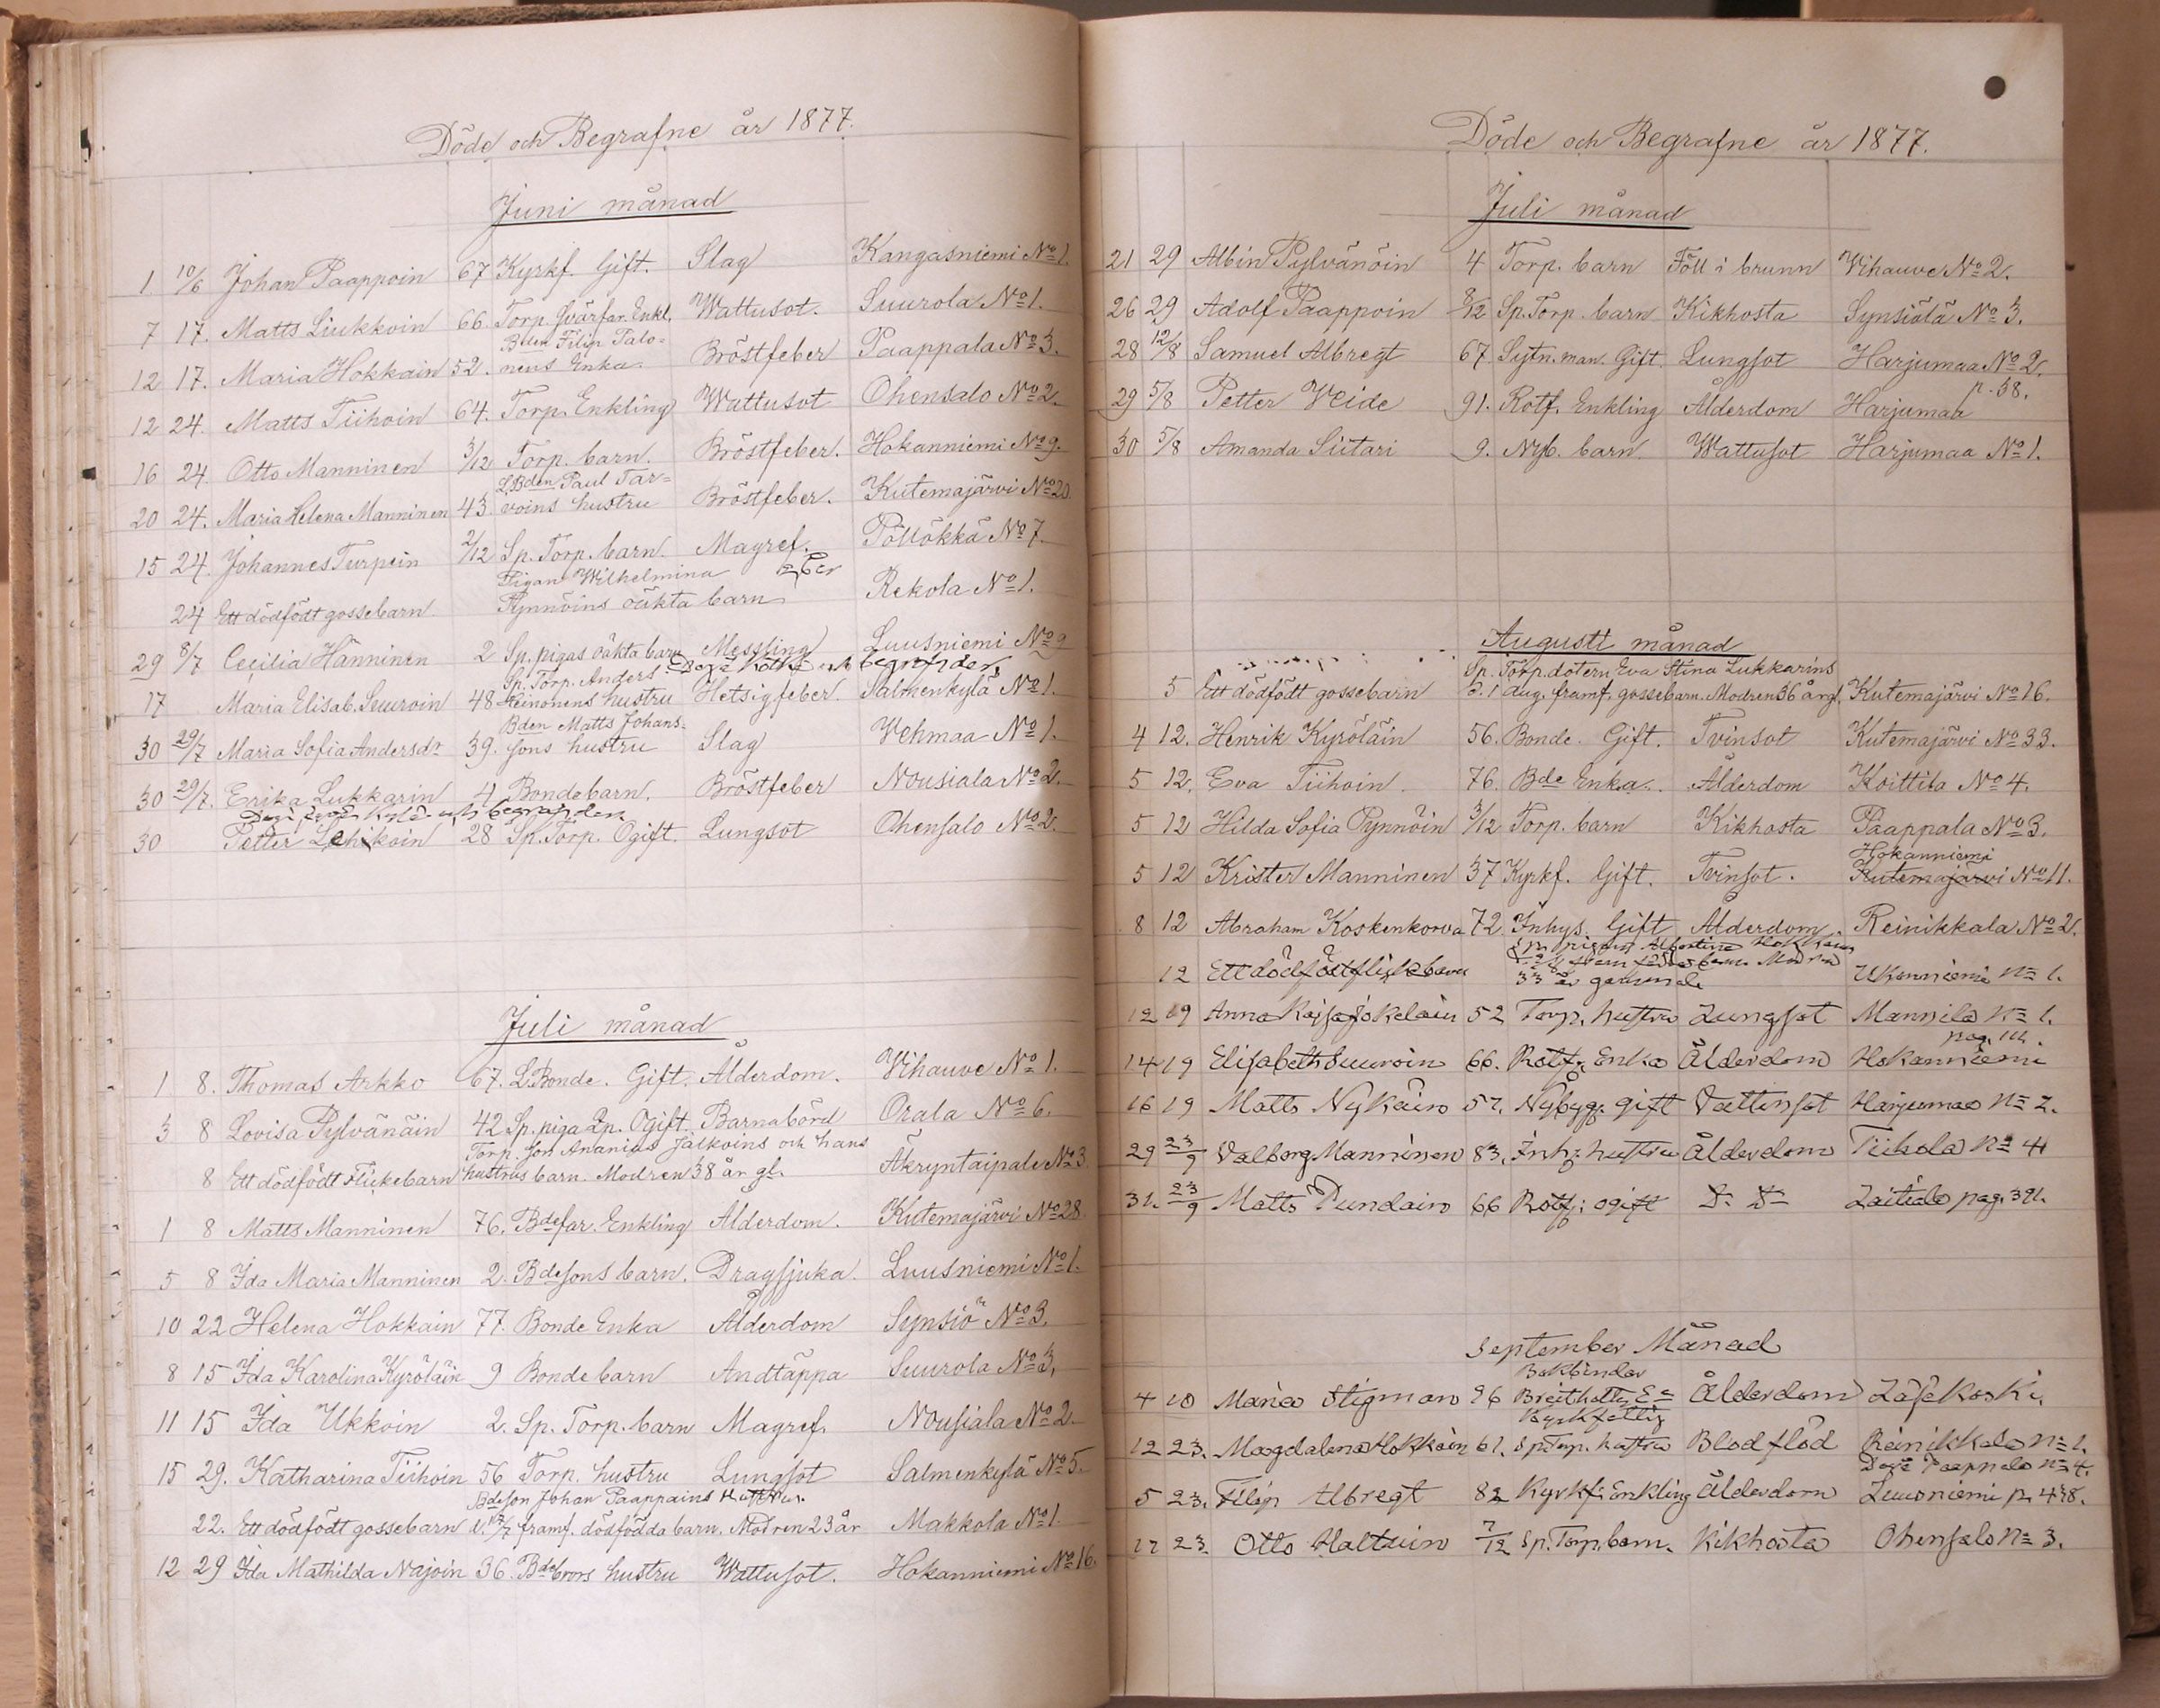 Döde och Begrafne år 1877.
Juni månad
1 10/6 Johan Paappoin 67 Kyrkf. Gift. Slag Kangasniemi No 1.
7 17. Matts Liukkoin 66. Torp. Svärfar. Enkl. Wattusot. Suurola No 1.
Bden Filip Palo=
12 17. Maria Hokkain 52. nens Enka. Bröstfeber Paappala No 3.
12 24. Matts Tiihoin 64. Torp. Enkling Wattusot Ohensalo No 2.
16 24 Otto Manninen 3/12 Torp. barn. Bröstfeber. Hokanniemi No 9.
LBden Paul Tar=
20 24. Maria Helena Manninen 43. voins hustru Bröstfeber. Kutemajärvi No 20.
15 24. Johannes Turpein 2/12 Sp. Torp. barn. Magref. Pöllökkä No 7.
Pigan Wilhelmina
24 Ett dödfödt gossebarn Pynnöins oäkta barn Rekola No 1.
29 8/7 Cecilia Hänninen 2 Sp. pigas oäkta barn Messling Luusniemi No 9
Sp. Torp. Anders begrafden
17 Maria Elisab. Suuroin 48 Heinonens hustru Hetsigfeber. Salmenkylä No 1.
Bden Matts Johans=
30 29/7 Maria Sofia Andersdr 39. sons hustru Slag Vehmaa No 1.
30 29/7. Erika Lukkarin 4 Bondebarn. Bröstfeber Nousiala No 2.
begrafden
30 Petter Lehikoin 28 Sp. Torp. Ogift. Lungsot Ohensalo No 2.
Juli månad
1 8. Thomas Arkko 67. L.Bonde. Gift. Ålderdom. Vihauve No 1.
3 8 Lovisa Pylvänäin 42 Sp. piga Lp. Ogift. Barnabörd Orala No 6.
Torp. son Ananias Jalkoins och hans
8 Ett dödfödt Flickebarn hustrus barn. Modren 38 år gl. Äkryntaipale No 3.
1 8 Matts Manninen 76. Bdefar. Enkling Ålderdom. Kutemajärvi No 28.
5 8 Ida Maria Manninen 2. Bdesons barn. Dragsjuka. Luusniemi No 1.
10 22 Helena Hokkain 77. Bonde Enka Ålderdom Synsiö No 3.
8 15 Ida Karolina Kyröläin 9 Bonde barn Andtäppa Suurola No 3,
11 15 Ida Ukkoin 2. Sp. Torp. barn Magref. Nousiala No 2.
15 29. Katharina Tiihoin 56 Torp. hustru Lungsot Salmenkylä No 5.
Bdeson Johan Paappains Hustrur.
22. Ett dödfödt gossebarn d. 17/7 framf. dödfödda barn. Modren 23 år Makkola No 1.
12 29 Ida Mathilda Najoin 36. Bdebrors hustru Wattusot. Hokanniemi No 16.
Döde och Begrafne år 1877.
Juli månad
21 29 Albin Pylvänöin 4 Torp. barn Föll i brunn Vihauve No 2.
26 29 Adolf Paappoin 8/12 Sp. Torp. barn Kikhosta Synsiölä No 3.
28 12/8 Samuel Albregt 67. Sytn. man. Gift. Lungsot Harjumaa No 2.
p. 58.
29 5/8 Petter Veide 91. Rotf. Enkling Ålderdom Harjumaa
30 5/8 Amanda Siitari 9. Nyb. barn. Wattusot Harjumaa No 1.
Augusti månad
Sp. Torp. dotern Eva Stina Lukkarins
5 Ett dödfödt gossebarn d. 1 Aug. framf. gossebarn. Modren 36 år gl. Kutemajärvi No 16.
4 12. Henrik Kyröläin 56. Bonde. Gift. Tvinsot Kutemajärvi No 33.
5 12. Eva Tiihoin. 76. Bde Enka. Ålderdom Koittila No 4.
5 12 Hilda Sofia Pynnöin 3/12 Torp. barn Kikhosta Paappala No 3.
Hokanniemi
5 12 Krister Manninen 37 Kyrkf. Gift. Tvinsot. Kutemajärvi No 11.
8 12 Abraham Koskenkorva 72 Inhys. Gift Ålderdom. Reinikkala No 2.
Sp. pigans Albertina Hokkains
12 Ett dödfödt flickebarn 33 år gammal Ukonniemi No 1.
12 19 Anna Kajsa Jokelain 52 Torp. hustru Lungsot Mannila No 1.
pag. 111.
14 19 Elisabeth Suuroin 66. Rotf. Enka Ålderdom Hokanniemi
16 19 Matts Nykäin 57. Nybygg. gift Vattusot Harjumaa No 2.
29 23/9 Valborg Manninen 83. Inh: hustru Ålderdom Tiihola No 4
31. 23/9 Matts Pundain 66 Rotf: ogift D- D- Laitiala pag. 391.
September Månad
Bokbindar
4 10 Maria Stigman 96 Breithaltz Ea Ålderdom Läsäkoski.
Kyrkfattig
12 23. Magdalena Hokkain 61. Sp. Torp. hustru Blodflöd Reinikkala No 1.
Paappala No 4.
5 23. Filip Albregt 82 Kyrkf: Enkling Ålderdom Luusniemi p. 438.
17 23. Otto Haltuin 7/12 Sp. Torp. barn. Kikhosta Ohensalo No 3.